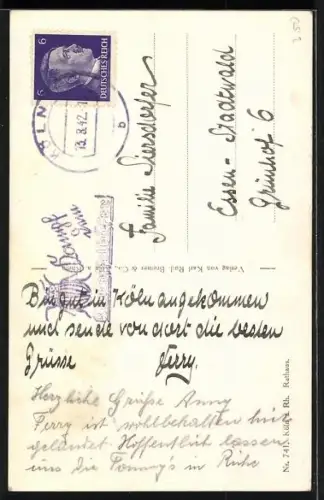 Bin gut in Köln angekommen
und sende von dort die besten
Grüsse Ferry.
Herzliche Grüße Anny
Ferry ist wohlbehalten hier
gelandet Hoffentlich lassen
uns die Tommy's in Ruhe
Familie Siersdorfer
Essen-Stadtwald
Grünhof 6
6 DEUTSCHES REICH 6
KÖLN
b
Kampf
dem
Verlag von Karl Rud. Bremer & Co., Köln a. Rh.
No. 741. Köln a. Rh. Rathaus.